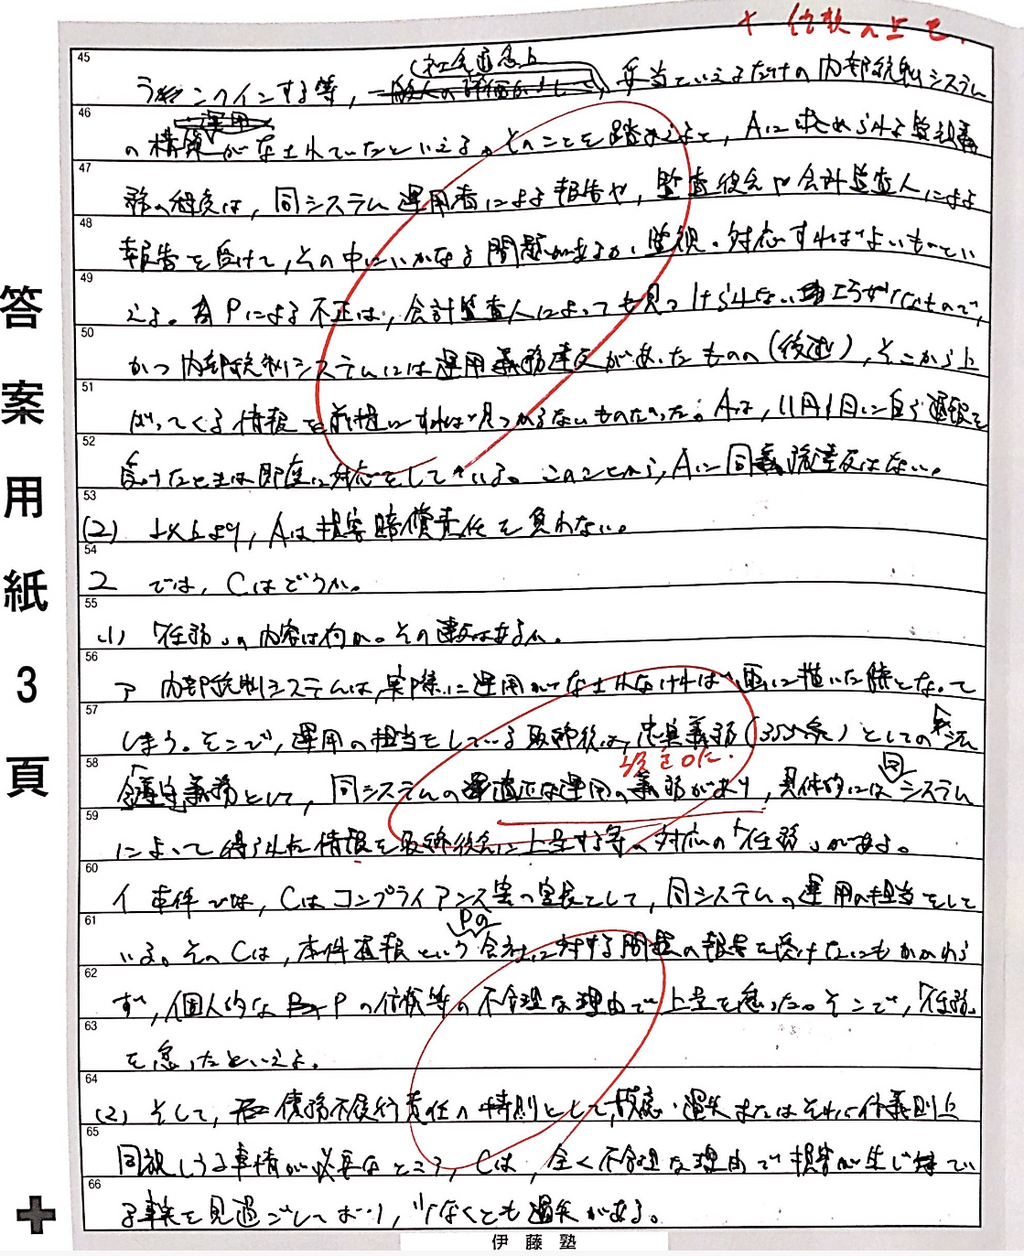 45 ラインインする等，社会通念上，妥当といえるだけの内部統制システム
46 の構築がなされていたといえる。そのことを踏まえると，Aに求められる監視義
47 務の程度は，同システム運用者による報告や，監査役会や会計監査人による
48 報告を受けて，その中にいかなる問題があるか，監視・対応すればよいものとい
49 える。Pによる不正は，会計監査人によっても見つけられない巧妙なもので，
50 かつ内部統制システムには運用義務違反があったものの（後述），そこから上
51 がってくる情報を前提にすれば見つからないものだった。Aは，11月1日に自ら通報を
52 受けたときは即座に対応をしている。このことから，Aに同義務違反はない。
53 (2) 以上より，Aは損害賠償責任を負わない。
54 2 では，Cはどうか。
55 (1) 「任務」の内容は何か。その違反はあるか。
56 ア 内部統制システムは，実際に運用がなされなければ画に描いた餅となって
57 しまう。そこで，運用の担当をしている取締役は，忠実義務（355条）としての法
58 令遵守義務として，同システムの適正な運用の義務があり，具体的には同システム
59 によって得られた情報を取締役会に上呈する等の対応の「任務」がある。
60 イ 本件では，Cはコンプライアンス室の室長として，同システムの運用の担当をして
61 いる。そのCは，本件通報というPの会社に対する問題の報告を受けたにもかかわら
62 ず，個人的なPの信頼等の不合理な理由で上呈を怠った。そこで，「任務」
63 を怠ったといえる。
64 (2) そして，債務不履行責任の特則として，故意・過失またはそれに信義則上
65 同視しうる事情が必要なところ，Cは，全く不合理な理由で損害が生じてい
66 る事実を見過ごしており，少なくとも過失がある。
答案用紙3頁
伊藤塾